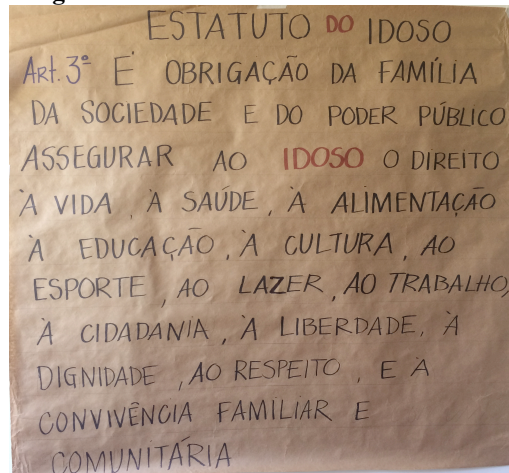 ESTATUTO DO IDOSO
Art. 3º É OBRIGAÇÃO DA FAMÍLIA
DA SOCIEDADE E DO PODER PÚBLICO
ASSEGURAR AO IDOSO O DIREITO
À VIDA, À SAÚDE, À ALIMENTAÇÃO
À EDUCAÇÃO, À CULTURA, AO
ESPORTE, AO LAZER, AO TRABALHO,
À CIDADANIA, À LIBERDADE, À
DIGNIDADE, AO RESPEITO, E À
CONVIVÊNCIA FAMILIAR E
COMUNITÁRIA